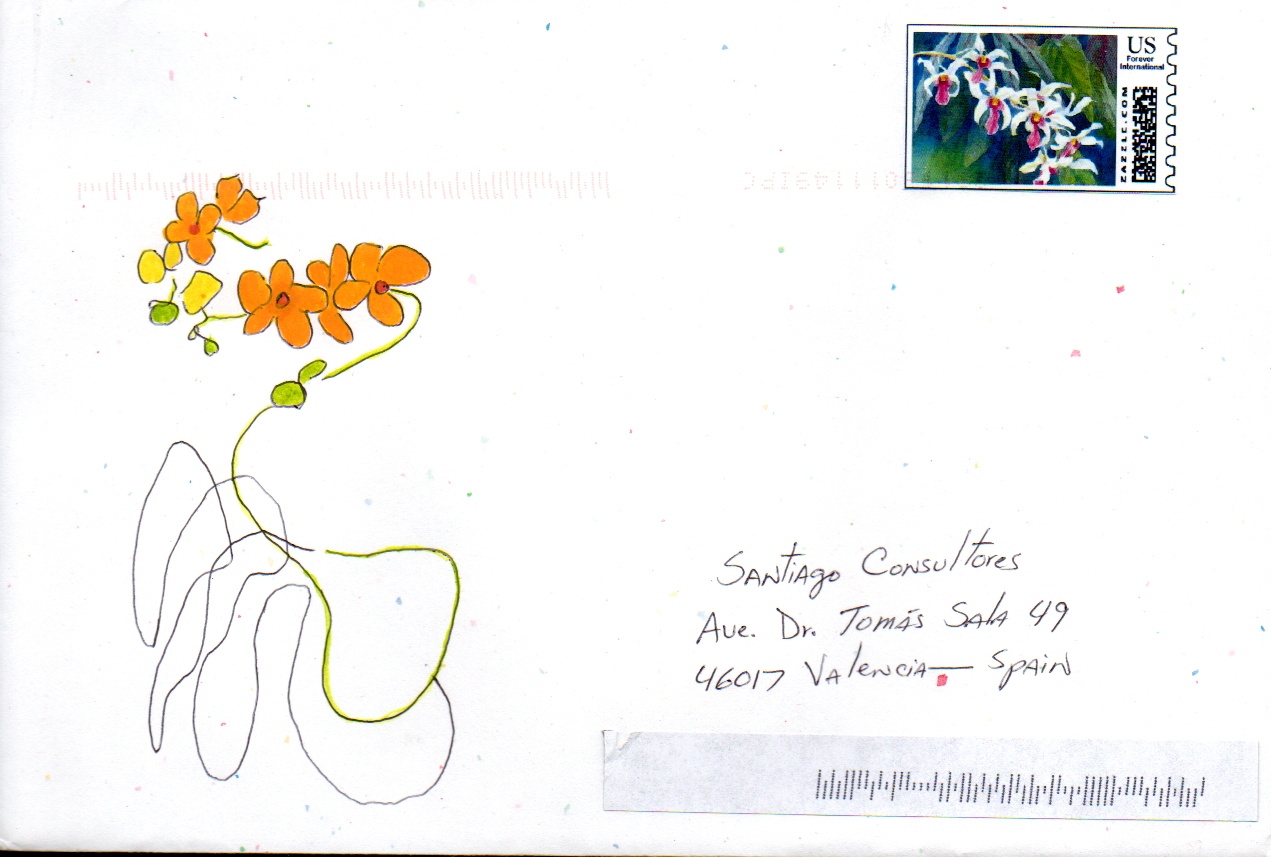 US
Forever
International
ZAZZLE.COM
Santiago Consultores
Ave. Dr. Tomás Sala 49
46017 Valencia — Spain